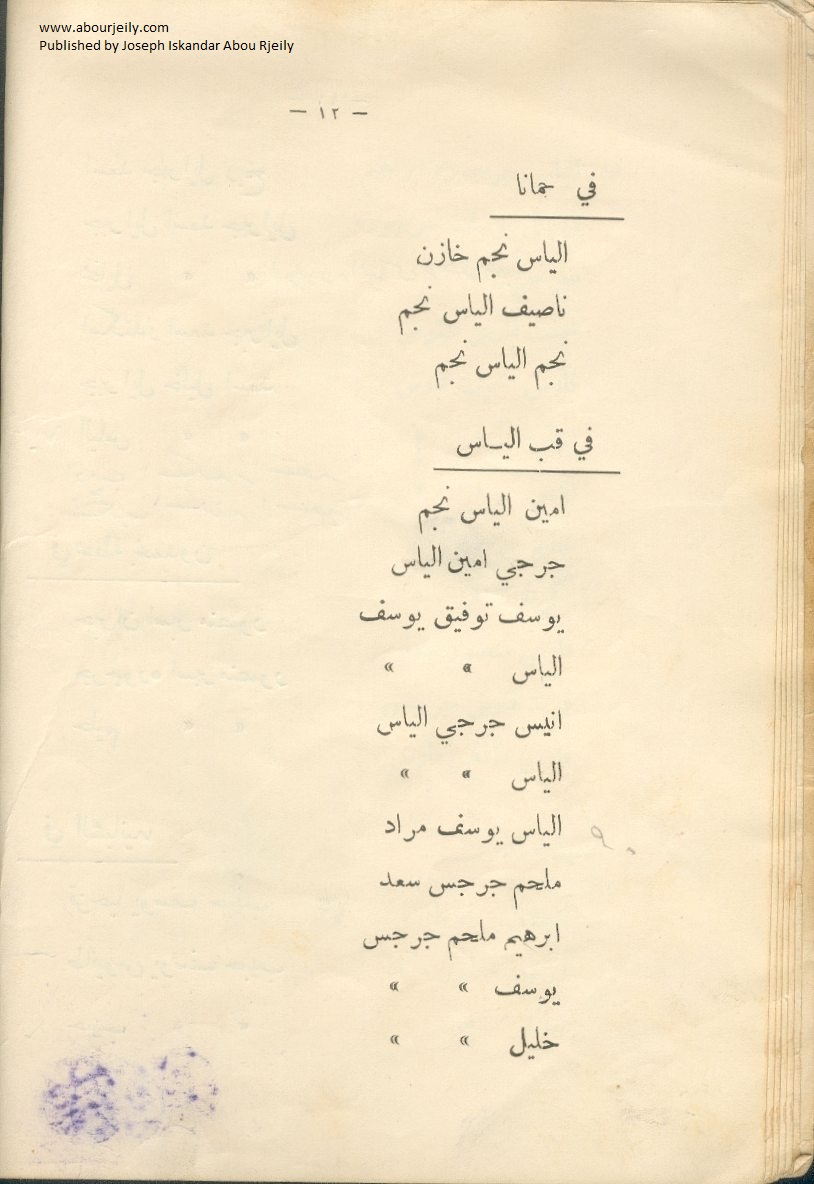 www.abourjeily.com
Published by Joseph Iskandar Abou Rjeily
— ١٢ —
في حمانا
الياس نجم خازن
ناصيف الياس نجم
نجم الياس نجم
في قب اليــاس
امين الياس نجم
جرجي امين الياس
يوسف توفيق يوسف
الياس » »
انيس جرجي الياس
الياس » »
الياس يوسف مراد
ملحم جرجس سعد
ابرهيم ملحم جرجس
يوسف » »
خليل » »